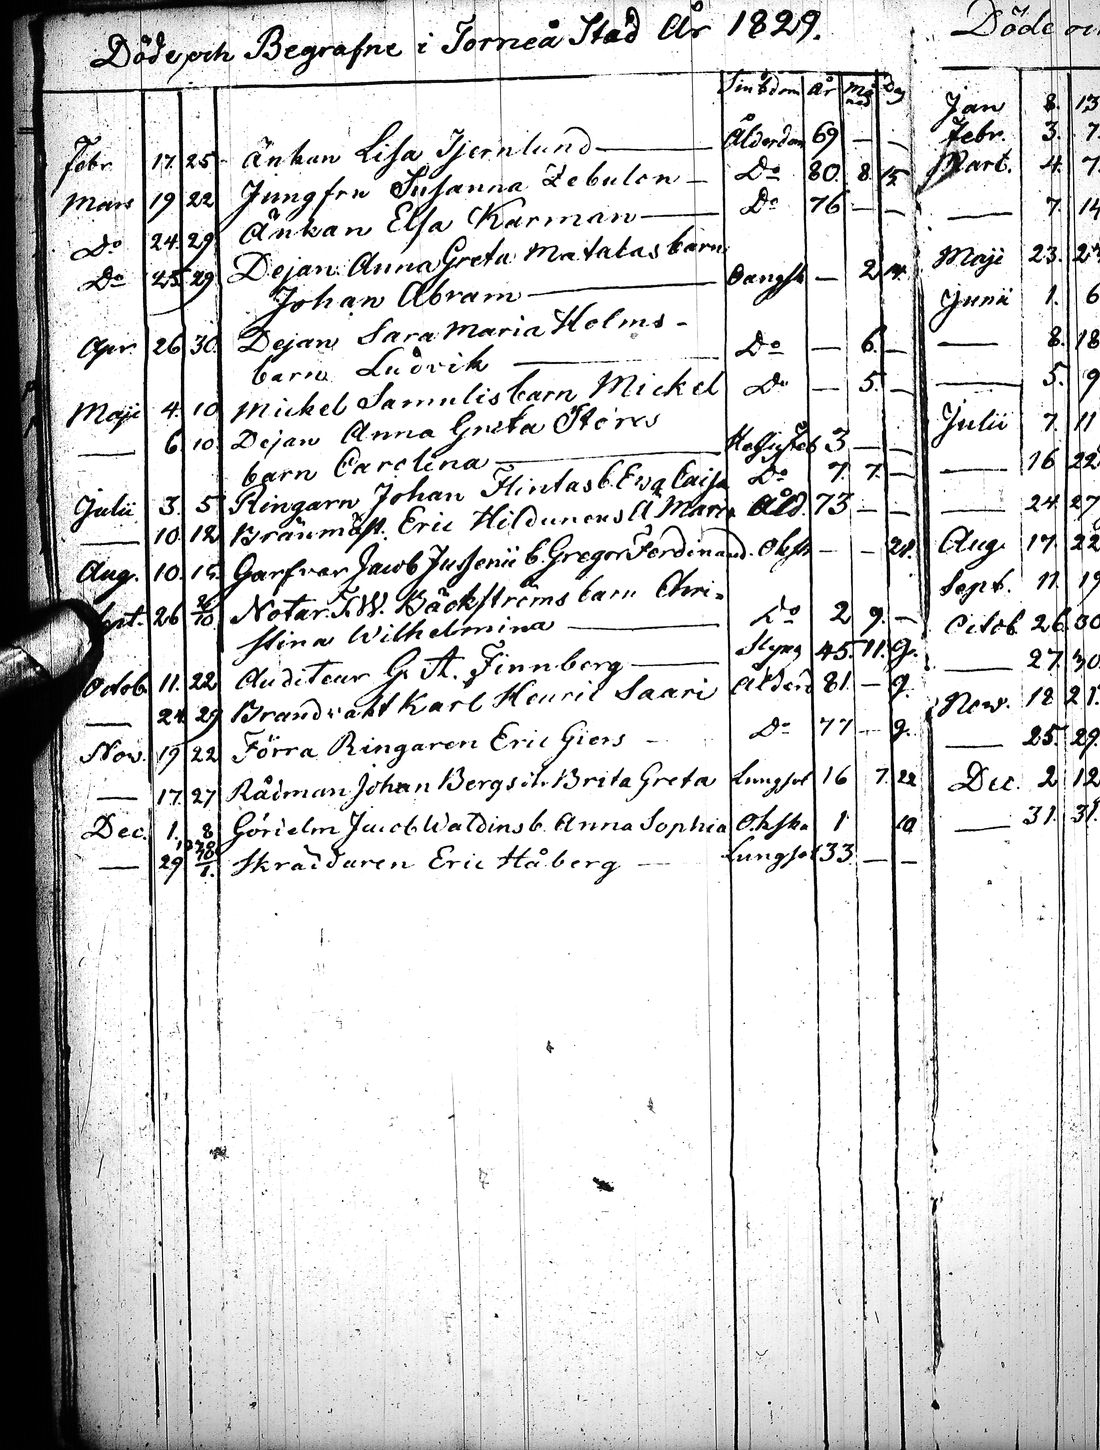 Döde och Begrafne i Torneå Stad År 1829.
Siukdom År Månad Dag
Febr. 17. 25. Änkan Lisa Tjernlund Ålderdom 69 — —
Mars 19 22 Jungfru Susanna Zebulon — Do 80. 8. 15.
Do 24. 29. Änkan Elsa Karman Do 76 — —
Do 25. 29. Dejan Anna Greta Matalas barn
Johan Abram — 2
Apr. 26 30. Dejan Sara Maria Holms-
barn Ludvik Do — 6. —
Maji 4. 10 Mickel Samulis barn Mickel Do — 5. —
— 6. 10. Dejan Anna Greta Stores
barn Carolina 3 — —
Julii 3. 5 Ringarn Johan Flintas b. Eva Caisa Do 7. 7. —
— 10. 12 Eric Hildunens Ä. Maria Åld. 73 — —
Aug. 10. 15. Garfvar Jacob Jusenii b. Gregor Ferdinand. — —
26 26/10. Notar. Bäckströms barn Chri-
stina Wilhelmina Do 2 9. —
Octob. 11. 22 Auditeur G. A. Finnberg 45. 11. 9.
— 24. 29 Brandvakt Karl Henric Saari Ålderd 81. — 9.
Nov. 19 22 Förra Ringaren Eric Giers — Do 77 — 9.
— 17. 27 Rådman Johan Bergs d. Brita Greta Lungsot 16 7. 22
Dec. 1. 8 Jacob Waldins b. Anna Sophia 1 10
— 29 1830 Skräddaren Eric Håberg — Lungsot 33. — —
Döde
Jan 8. 13
Febr. 3. 7.
Mart. 4. 7.
— 7. 14
Maji 23.
Junii 1. 6
— 8. 18
— 5. 9
Julii 7. 11
— 16 22
— 24. 27
Aug. 17. 22
Sept. 11. 19
Octob. 26. 30
— 27. 30.
Nov. 18 21.
— 25. 29.
Dec. 2 12
— 31. 31.